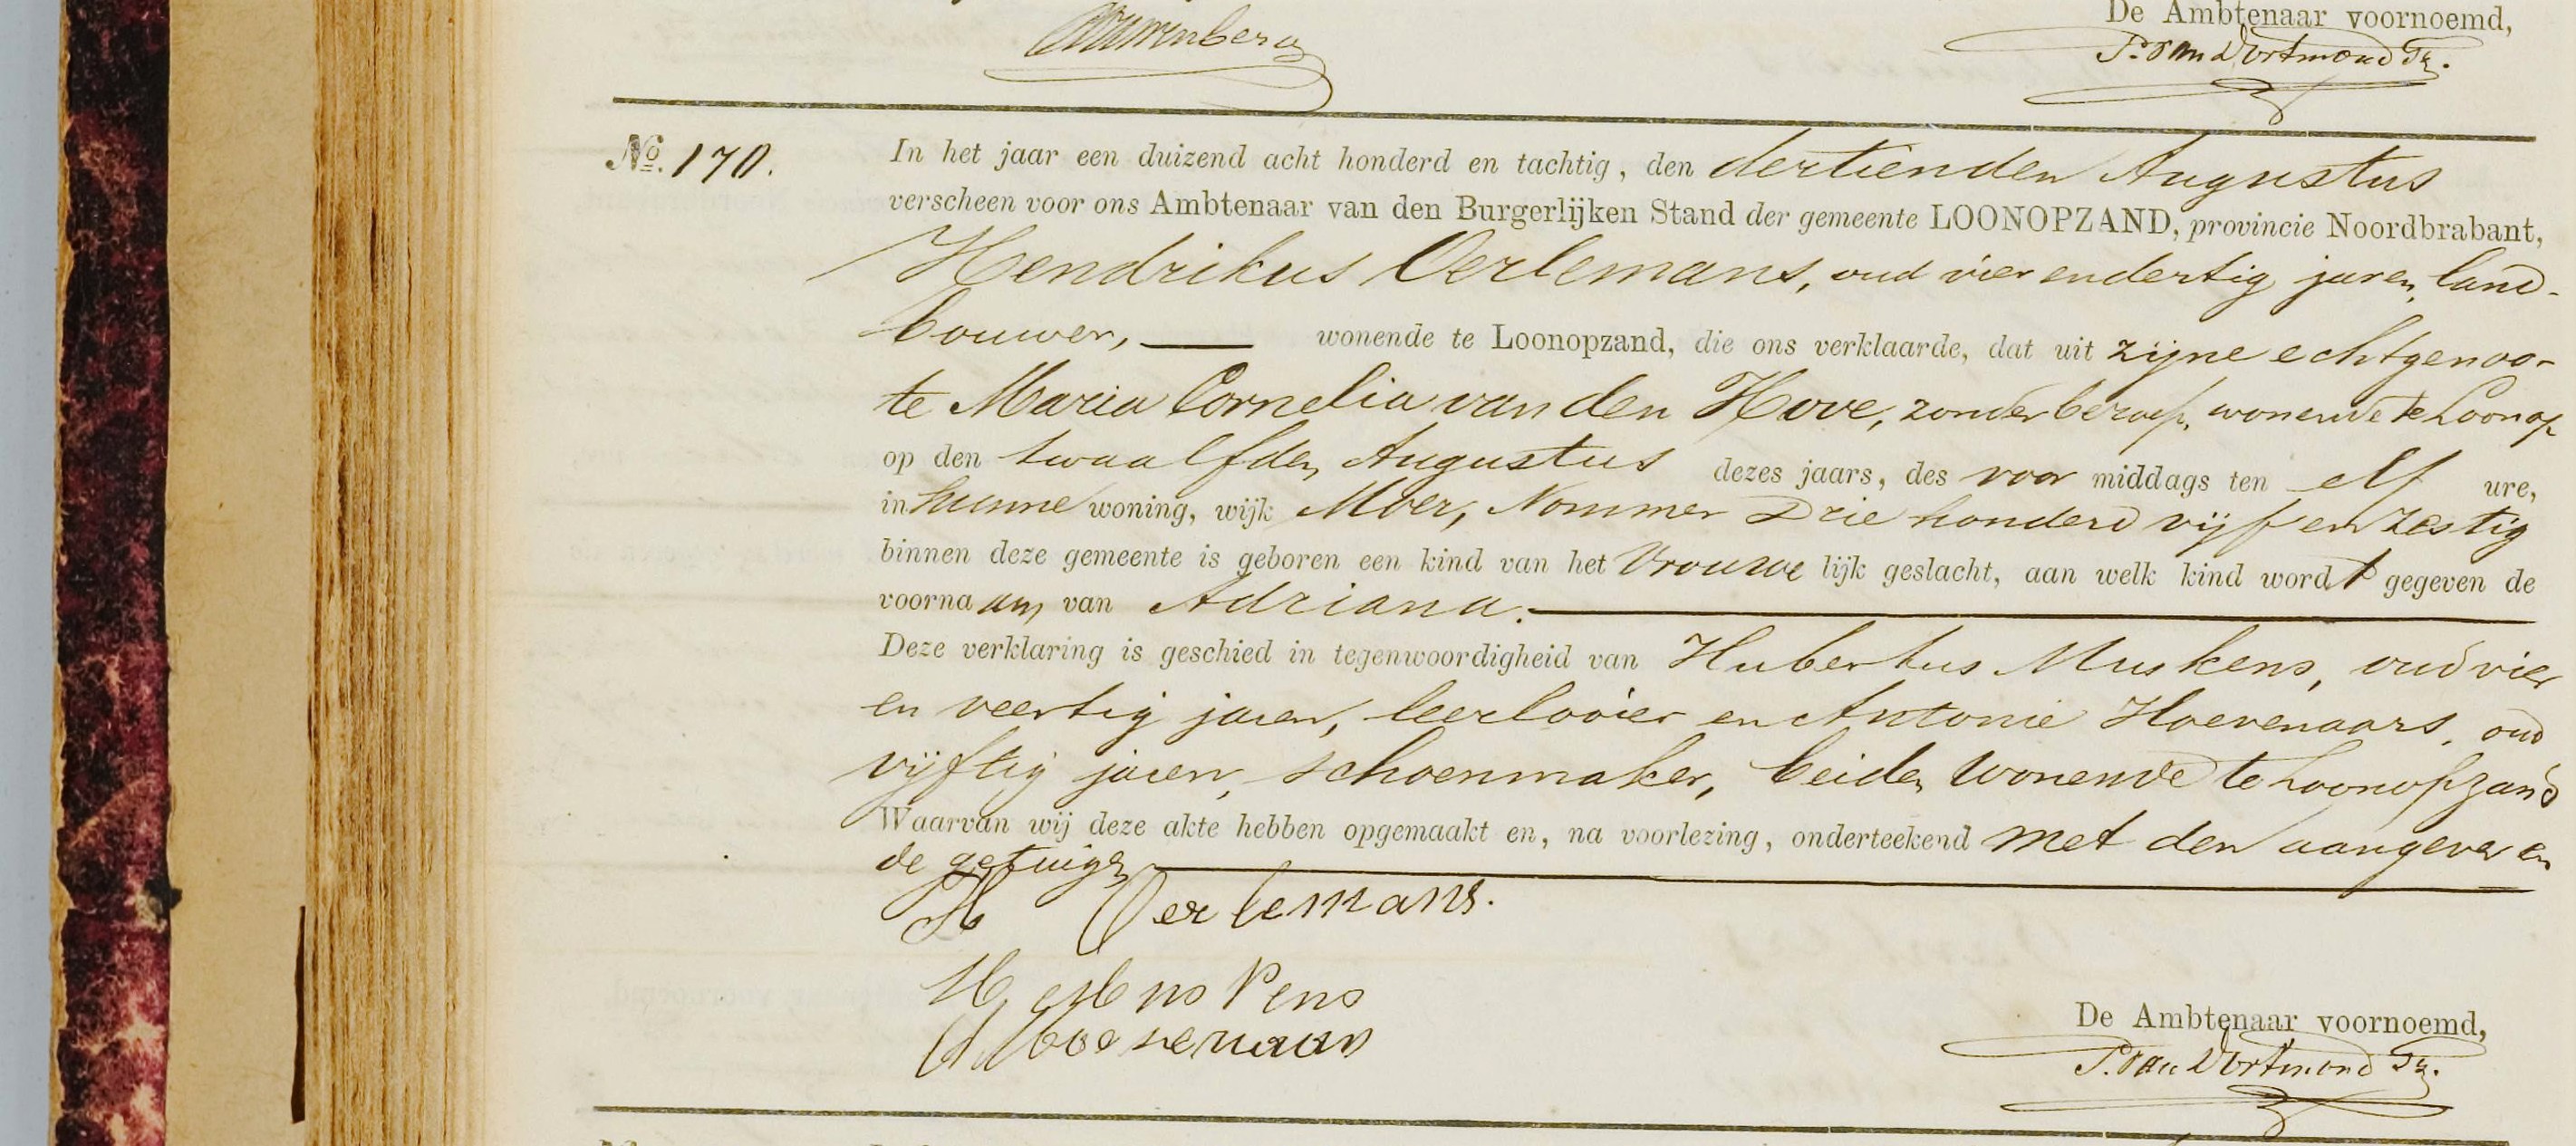 De Ambtenaar voornoemd,
P. van Dortmond Tz.
No. 170.
In het jaar een duizend acht honderd en tachtig, den dertienden Augustus
verscheen voor ons Ambtenaar van den Burgerlijken Stand der gemeente LOONOPZAND, provincie Noordbrabant,
Hendrikus Oerlemans, oud vier en dertig jaren, land-
bouwer, wonende te Loonopzand, die ons verklaarde, dat uit zijne echtgenoo-
te Maria Cornelia van den Hove, zonder beroep, wonende te Loonop
op den twaalfden Augustus dezes jaars, des voor middags ten elf ure,
in hunne woning, wijk Moer, Nommer Drie honderd vijf en zestig
binnen deze gemeente is geboren een kind van het Vrouwe lijk geslacht, aan welk kind wordt gegeven de
voornaam van Adriana.
Deze verklaring is geschied in tegenwoordigheid van Hubertus Muskens, oud vier
en veertig jaren, leerlooier en Antonie Hoevenaars, oud
vijftig jaren, schoenmaker, beiden wonende te Loonopzand
Waarvan wij deze akte hebben opgemaakt en, na voorlezing, onderteekend met den aangever en
de getuigen
H Oerlemans.
De Ambtenaar voornoemd,
P. van Dortmond Tz.